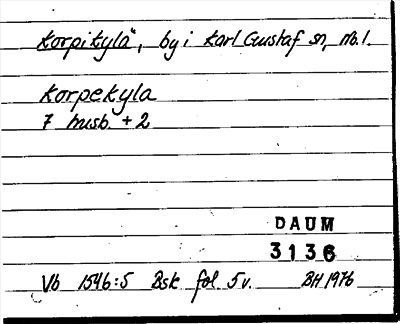 Korpikylä, by i Karl Gustaf sn, Nb.
Korpekyla
7 husb. + 2
DAUM
3136
Vb 1546:5 Bsk fol. 5v. BH 1976